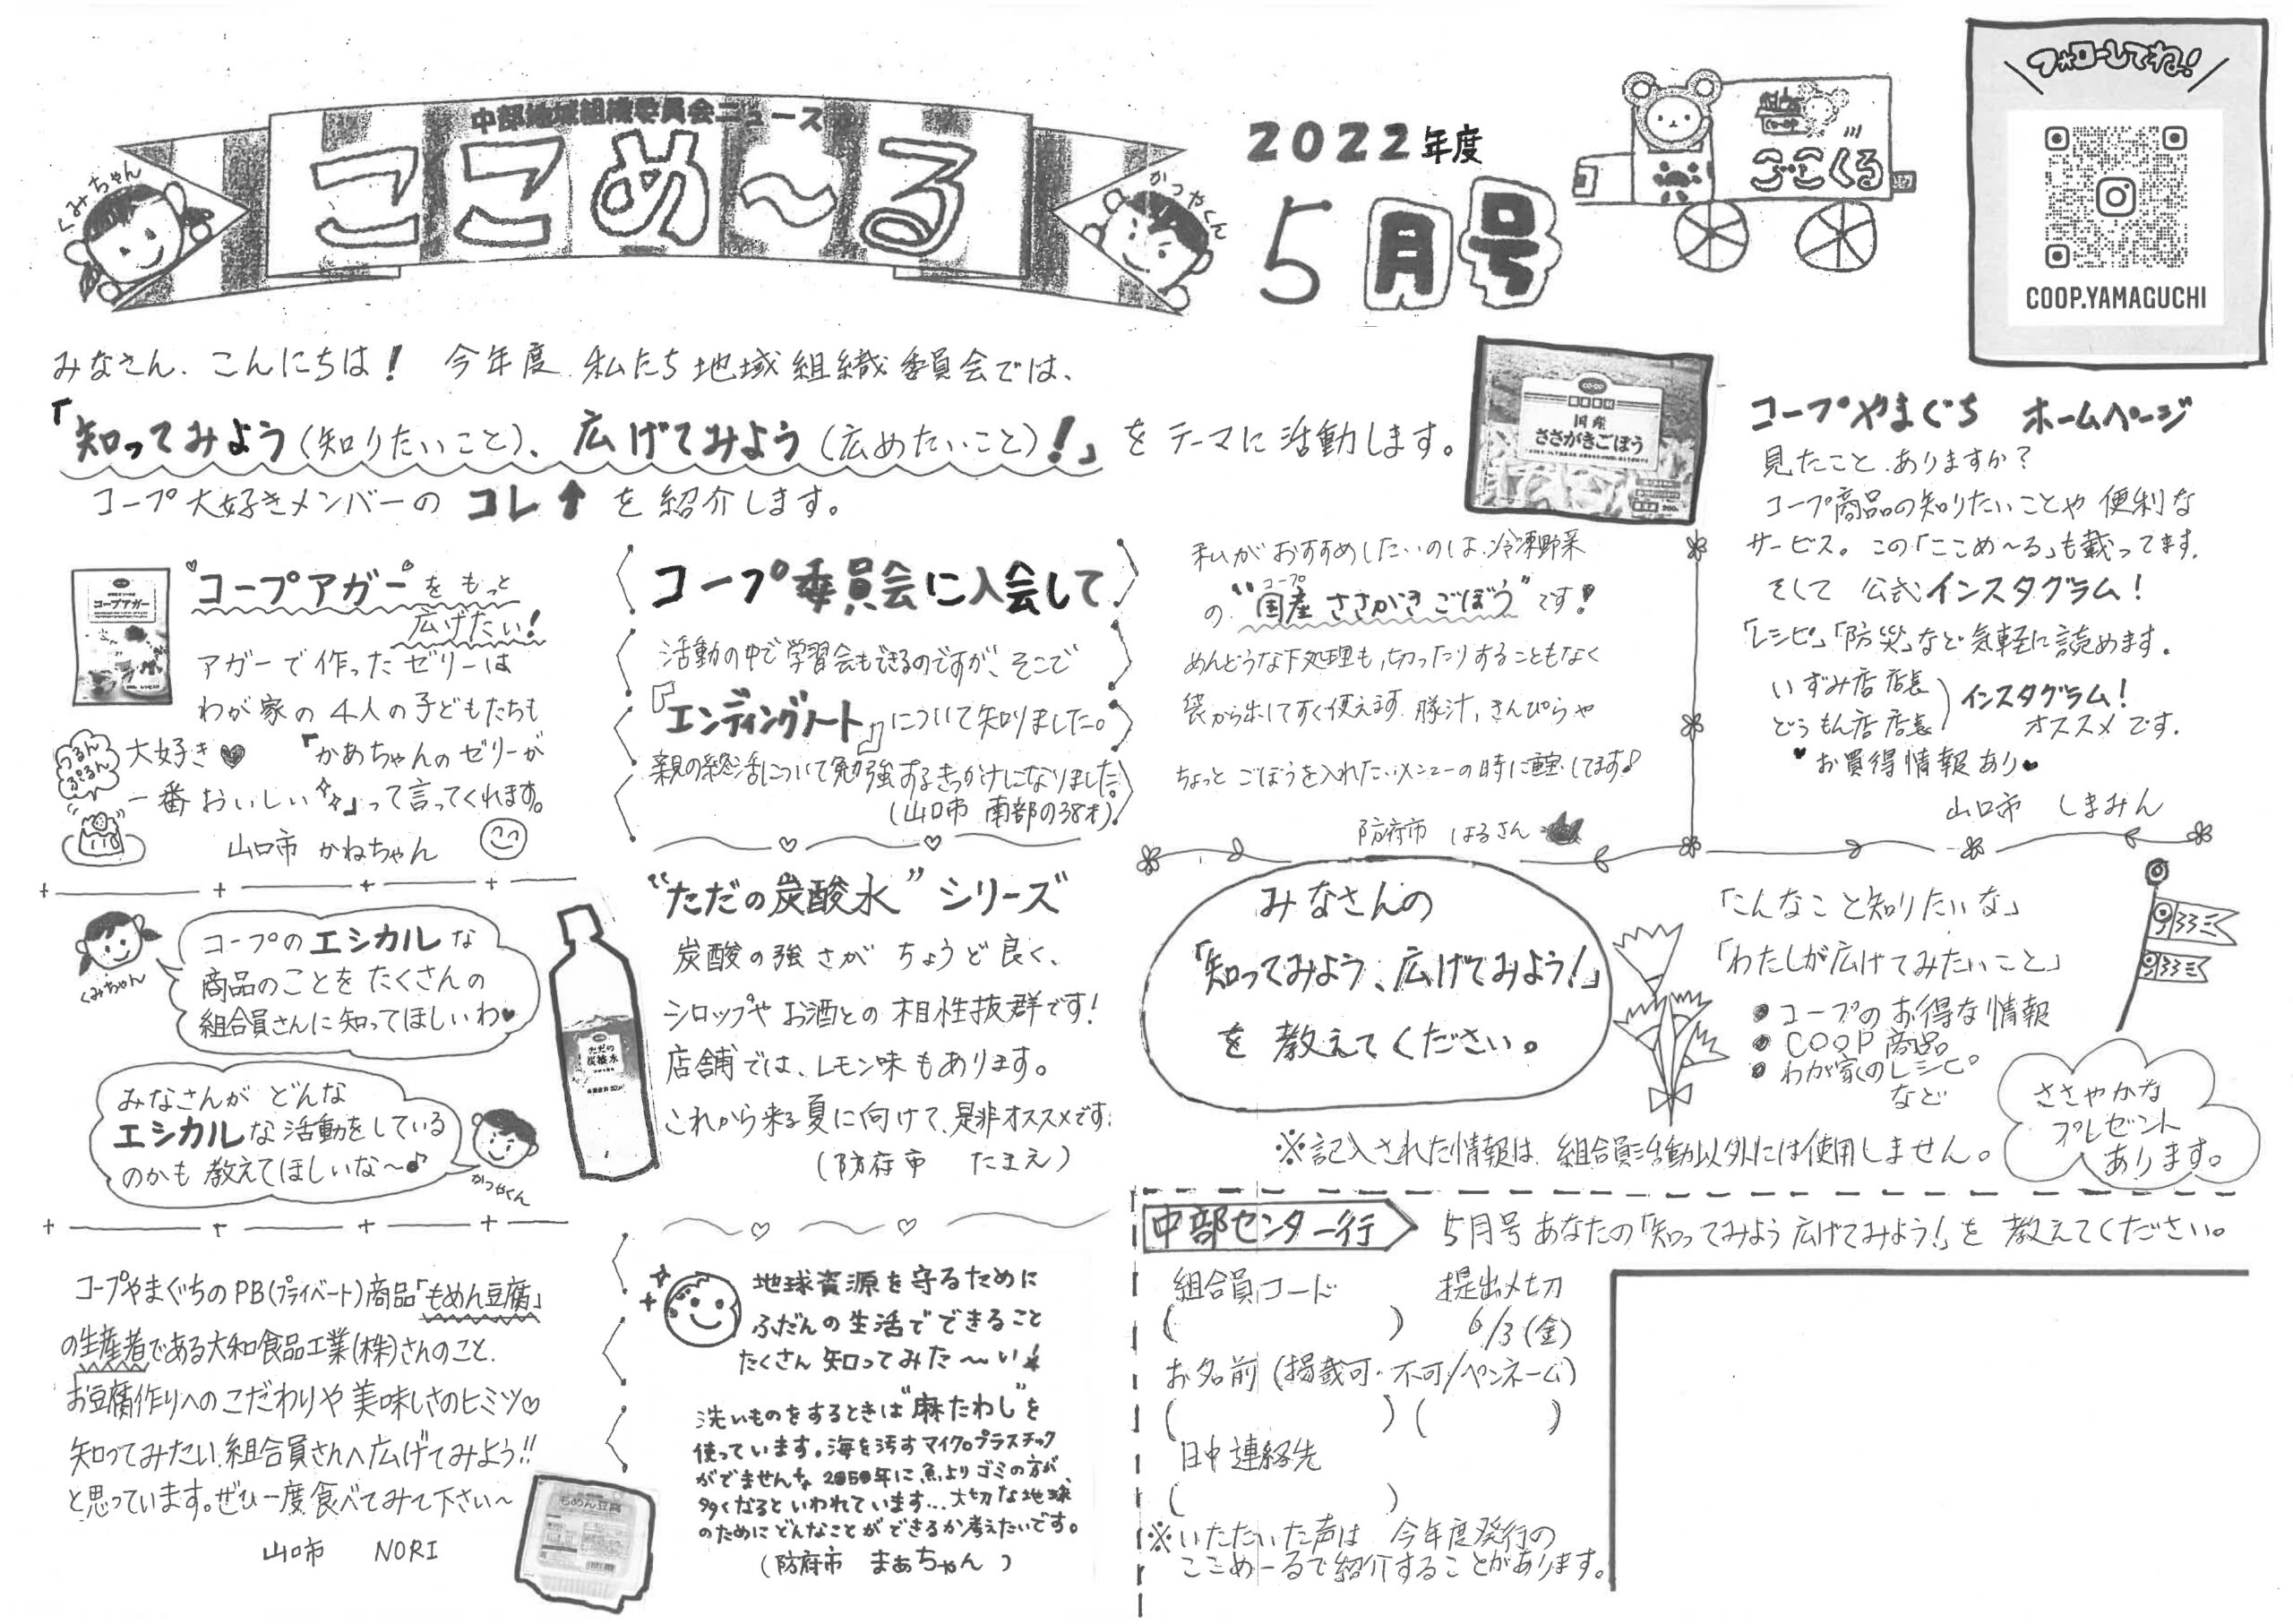 中部地域組織委員会ニュース
ここめ〜る
くみちゃん
かつやくん
2022年度
5月号
ここくる
フォローしてね!
COOP.YAMAGUCHI
みなさん、こんにちは! 今年度 私たち地域組織委員会では、
「知ってみよう(知りたいこと)、広げてみよう(広めたいこと)!」をテーマに活動します。
コープ大好きメンバーの コレ↑ を紹介します。
コープアガー
"コープアガー"をもっと
広げたい!
アガーで作ったゼリーは
わが家の4人の子どもたちも
大好き♥ 「かあちゃんのゼリーが
一番おいしい」って言ってくれます。
つるん
ぷるん
山口市 かねちゃん
コープ委員会に入会して
活動の中で学習会もできるのですが、そこで
『エンディングノート』について知りました。
親の終活について勉強するきっかけになりました。
(山口市 南部の38才)
CO・OP
国産
ささがきごぼう
私がおすすめしたいのは、冷凍野菜
の"コープ国産ささがきごぼう"です!
めんどうな下処理も、切ったりすることもなく
袋から出してすぐ使えます。豚汁、きんぴらや
ちょっとごぼうを入れたいメニューの時に重宝してます♪
防府市 はるさん
コープやまぐち ホームページ
見たこと、ありますか?
コープ商品の知りたいことや便利な
サービス。この「ここめ〜る」も載ってます。
そして 公式インスタグラム!
「レシピ」「防災」など気軽に読めます。
いずみ店 店長
どうもん店 店長
インスタグラム!
オススメです。
♥お買得情報あり♥
山口市 しまみん
くみちゃん
コープのエシカルな
商品のことをたくさんの
組合員さんに知ってほしいわ♥
みなさんがどんな
エシカルな活動をしている
のかも教えてほしいな〜♪
かつやくん
"ただの炭酸水"シリーズ
炭酸の強さがちょうど良く、
シロップやお酒との相性抜群です!
店舗では、レモン味もあります。
これから来る夏に向けて、是非オススメです!
(防府市 たまえ)
ただの
炭酸水
みなさんの
「知ってみよう、広げてみよう!」
を教えてください。
「こんなこと知りたいな」
「わたしが広げてみたいこと」
●コープのお得な情報
●COOP商品
●わが家のレシピ
など
ささやかな
プレゼント
あります。
※記入された情報は、組合員活動以外には使用しません。
コープやまぐちのPB(プライベート)商品「もめん豆腐」
の生産者である大和食品工業(株)さんのこと、
お豆腐作りへのこだわりや美味しさのヒミツ♡
知ってみたい、組合員さんへ広げてみよう!!
と思っています。ぜひ一度食べてみて下さい〜
山口市 NORI
もめん豆腐
地球資源を守るために
ふだんの生活でできること
たくさん知ってみた〜い!
洗いものをするときは"麻たわし"を
使っています。海を汚すマイクロプラスチック
がでません。2050年に、魚よりゴミの方が
多くなるといわれています…大切な地球
のためにどんなことができるか考えたいです。
(防府市 まぁちゃん)
中部センター行
5月号 あなたの「知ってみよう 広げてみよう!」を教えてください。
組合員コード 提出〆切
( ) 6/3(金)
お名前(掲載可・不可/ペンネーム)
( ) ( )
日中連絡先
( )
※いただいた声は 今年度発行の
ここめーるで紹介することがあります。